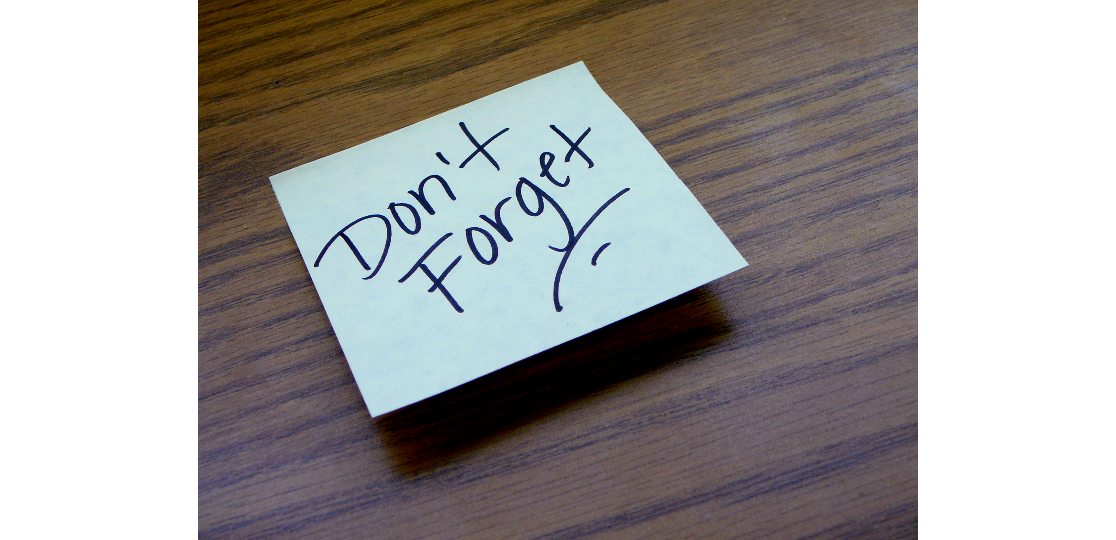 Don't
Forget